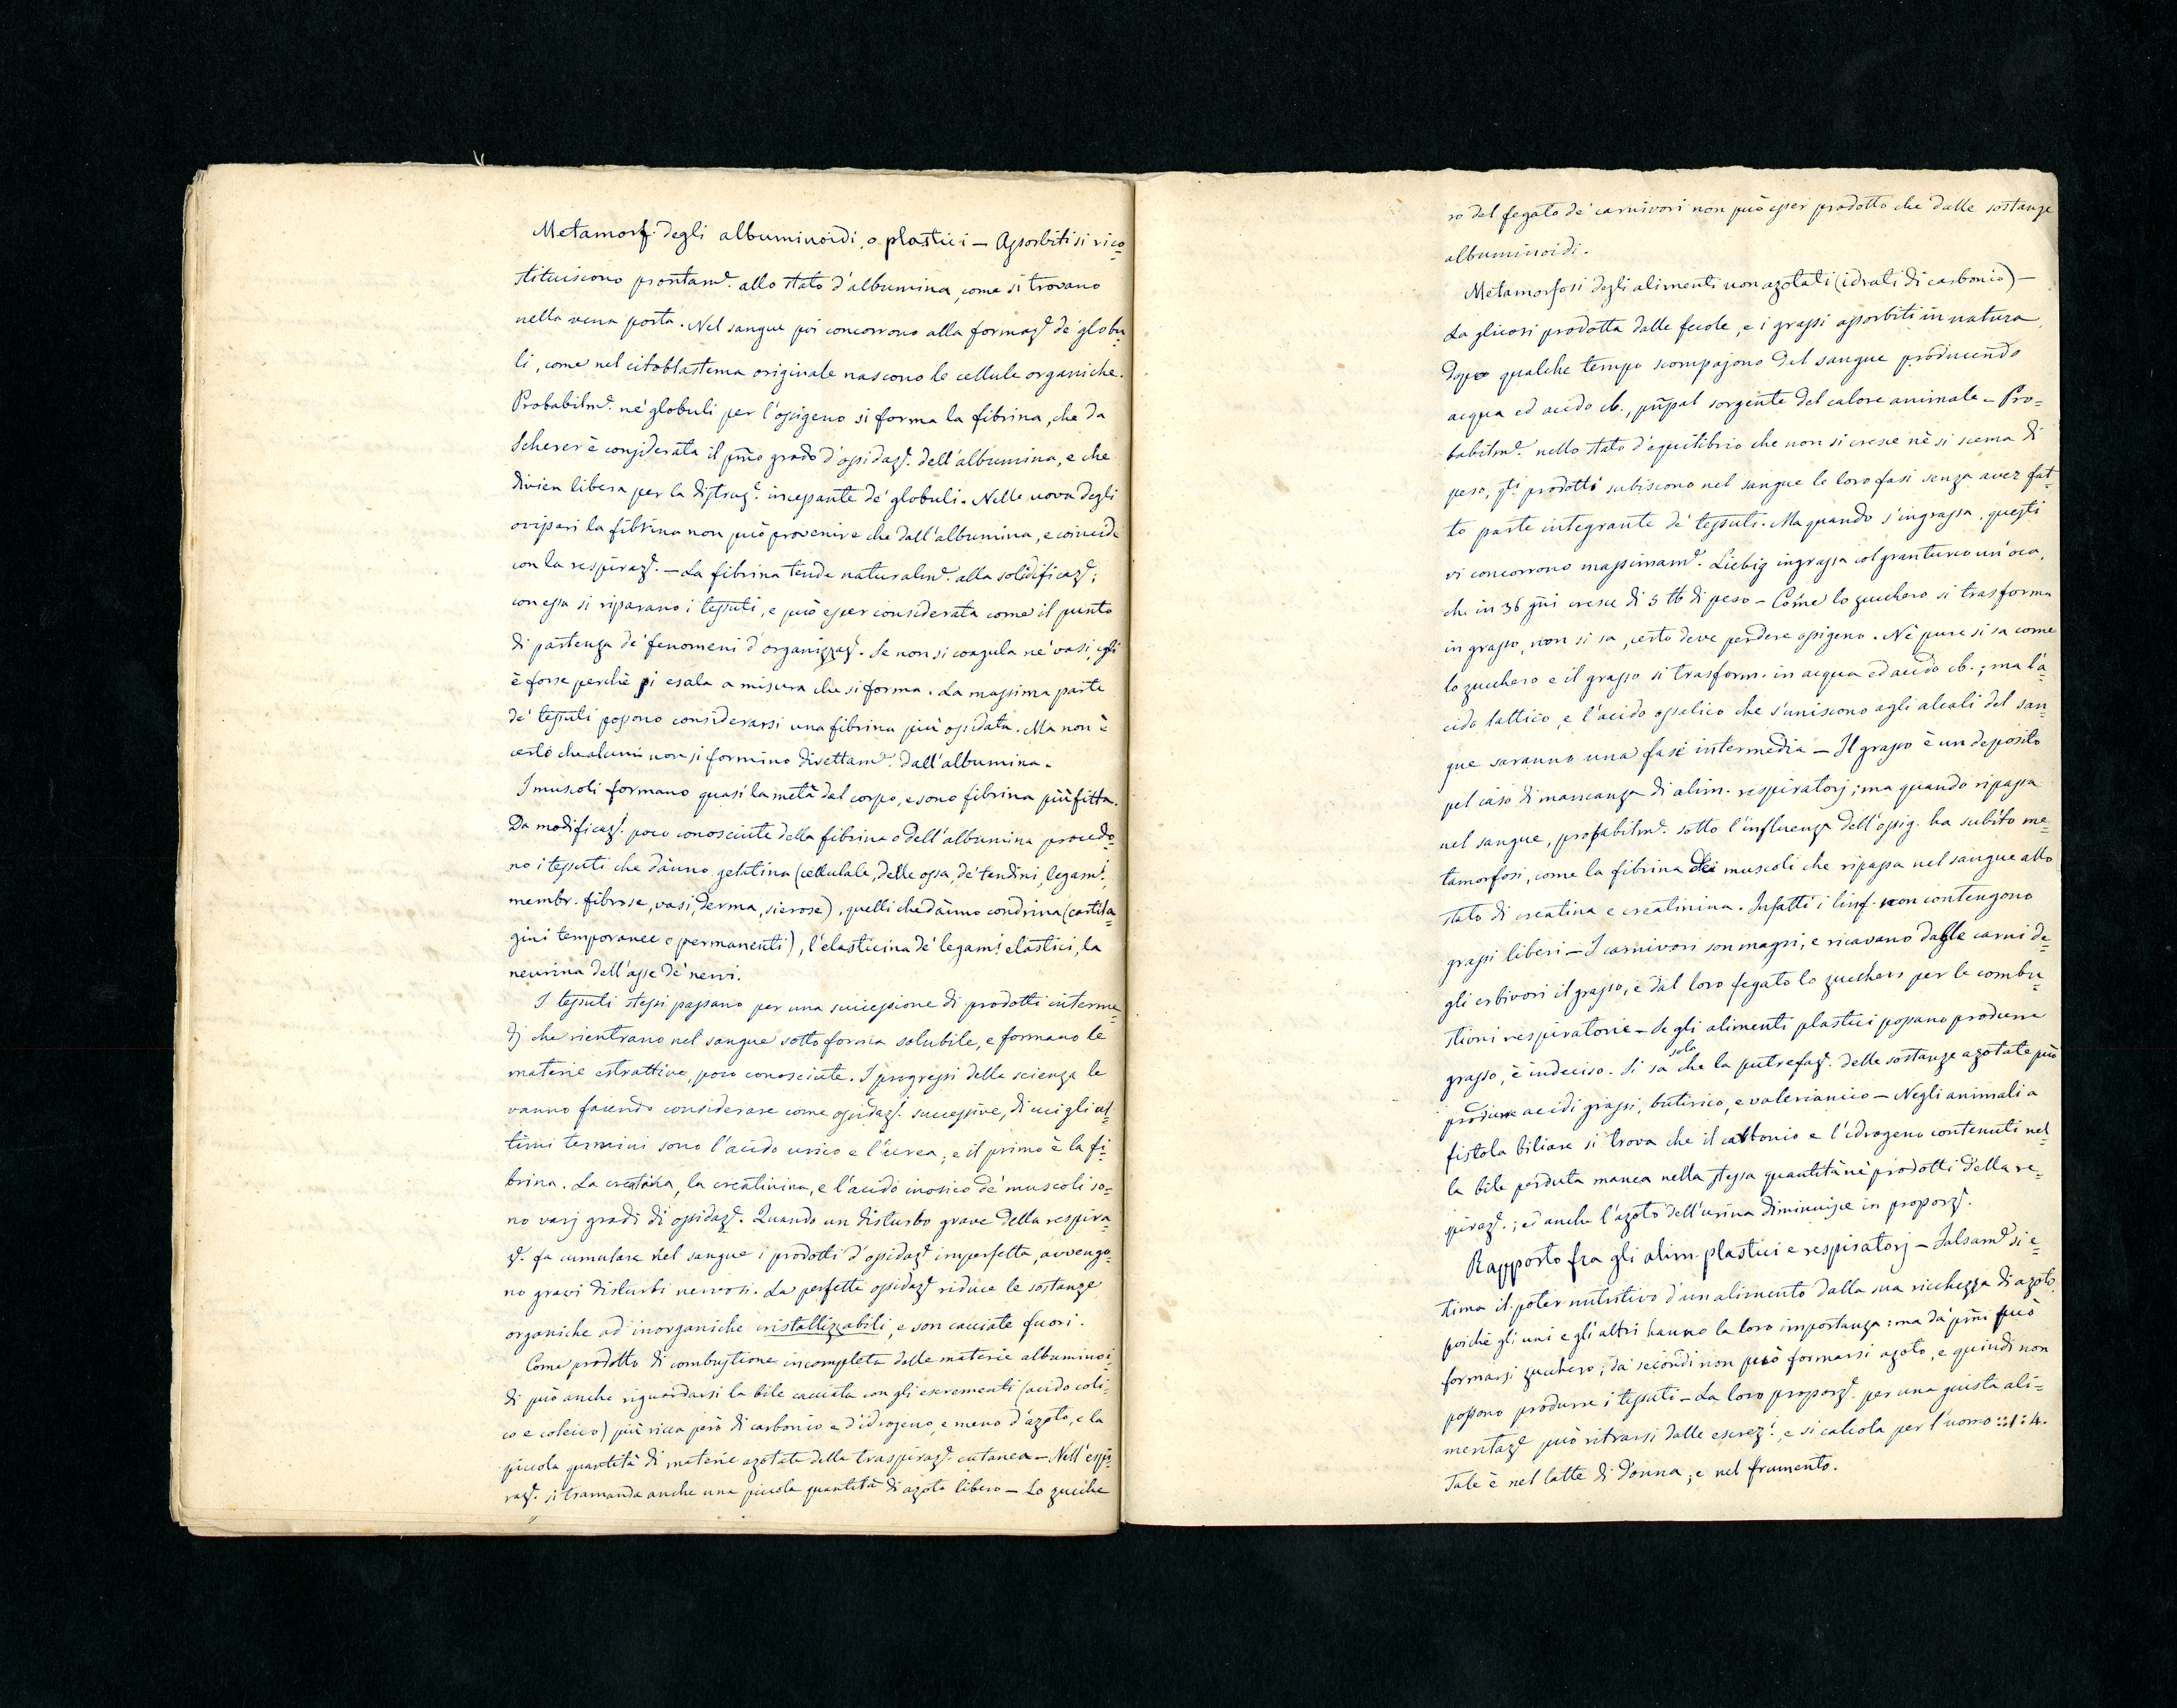 Metamorf. degli albuminoidi, o plastici — Assorbiti si rico=
stituiscono prontam.e allo stato d'albumina, come si trovano
nella vena porta. Nel sangue poi concorrono alla formaz.e de' globu=
li, come nel citoblastema originale nascono le cellule organiche.
Probabilm.e ne' globuli per l'ossigeno si forma la fibrina, che da
Scherer è considerata il pm̃o grado d'ossidaz.e dell'albumina, e che
divien libera per la distruz.e incessante de' globuli. Nelle uova degli
ovipari la fibrina non può provenire che dall'albumina, e coincide
con la respiraz.e — La fibrina tende naturalm.e alla solidificaz.e;
con essa si riparano i tessuti, e può esser considerata come il punto
di partenza de' fenomeni d'organizzaz.e. Se non si coagula ne' vasi, egli
è forse perchè si esala a misura che si forma. La massima parte
de' tessuti possono considerarsi una fibrina più ossidata. Ma non è
certo che alcuni non si formino direttam.e dall'albumina.
I muscoli formano quasi la metà del corpo, e sono fibrina più fitta.
Da modificaz.i poco conosciute della fibrina o dell'albumina procedo=
no i tessuti che dànno gelatina (cellulale, delle ossa, de' tendini, legam.i,
membr. fibrose, vasi, derma, sierose), quelli che dànno condrina (cartila=
gini temporanee o permanenti), l'elasticina de' legam.i elastici, la
neurina dell'asse de' nervi.
I tessuti stessi passano per una successione di prodotti interme=
dj che rientrano nel sangue sotto forma solubile, e formano le
materie estrattive, poco conosciute. I progressi della scienza le
vanno facendo considerare come ossidaz.i successive, di cui gli ul=
timi termini sono l'acido urico e l'urea; e il primo è la fi=
brina. La creatina, la creatinina, e l'acido inosico de' muscoli so=
no varj gradi di ossidaz.e. Quando un disturbo grave della respira=
z.e fa cumulare nel sangue i prodotti d'ossidaz.e imperfetta, avvengo=
no gravi disturbi nervosi. La perfetta ossidaz.e riduce le sostanze
organiche ad inorganiche cristallizzabili, e son cacciate fuori.
Come prodotto di combustione incompleta delle materie albuminoi=
di può anche riguardarsi la bile cacciata con gli escrementi (acido coli=
co e coleico) più ricca però di carbonio e d'idrogeno, e meno d'azoto, e la
piccola quantità di materie azotate della traspiraz.e cutanea — Nell'espi=
raz.e si tramanda anche una piccola quantità di azoto libero — Lo zucche
ro del fegato de' carnivori non può esser prodotto che dalle sostanze
albuminoidi.
Metamorfosi degli alimenti non azotati (idrati di carbonio) —
La glicosi prodotta dalle fecole, e i grassi assorbiti in natura,
dopo qualche tempo scompajono dal sangue producendo
acqua ed acido cb., pñpal sorgente del calore animale — Pro=
babilm.e nello stato d'equilibrio che non si cresce nè si scema di
peso, q.ti prodotti subiscono nel sangue le loro fasi senza aver fat=
to parte integrante de' tessuti. Ma quando s'ingrassa, questi
vi concorrono massimam.e. Liebig ingrassa col granturco un'oca,
che in 36 gñi cresce di 5 ℔ di peso — Come lo zucchero si trasforma
in grasso, non si sa, certo deve perdere ossigeno. Nè pure si sa come
lo zucchero e il grasso si trasform. in acqua ed acido cb.; ma l'a=
cido lattico, e l'acido ossalico che s'uniscono agli alcali del san=
gue saranno una fase intermedia — Il grasso è un deposito
pel caso di mancanza di alim. respiratorj; ma quando ripassa
nel sangue, probabilm.e sotto l'influenza dell'ossig. ha subito me=
tamorfosi, come la fibrina dei muscoli che ripassa nel sangue allo
stato di creatina e creatinina. Infatti i linf. non contengono
grassi liberi — I carnivori son magri, e ricavano dalle carni de=
gli erbivori il grasso, e dal loro fegato lo zucchero per le combu=
stioni respiratorie — Se gli alimenti plastici possano produrre
grasso, è indeciso. Si sa solo che la putrefaz.e delle sostanze azotate può
produrre acidi grassi, butirico, e valerianico — Negli animali a
fistola biliare si trova che il carbonio e l'idrogeno contenuti nel=
la bile perduta manca nella stessa quantità ne' prodotti della re=
spiraz.e; ed anche l'azoto dell'urina diminuisce in proporz.e.
Rapporto fra gli alim. plastici e respiratorj — Falsam.e si e=
stima il poter nutritivo d'un alimento dalla sua ricchezza di azoto,
poichè gli uni e gli altri hanno la loro importanza: ma da' pm̃i può
formarsi zucchero; da' secondi non può formarsi azoto, e quindi non
possono produrre i tessuti — La loro proporz.e per una giusta ali=
mentaz.e può ritrarsi dalle escrez.i, e si calcola per l'uomo ::1:4.
Tale è nel latte di donna; e nel frumento.